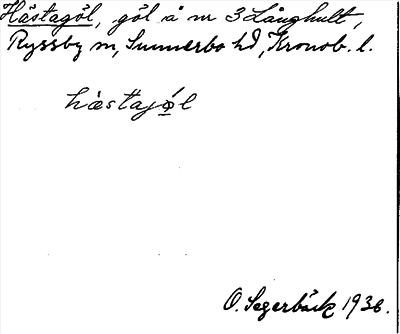 Hästagöl, göl å m 3 Långhult,
Ryssby sn, Sunnerbo hd, Kronob. l.
hästajø̀l
O. Segerbäck 1936.